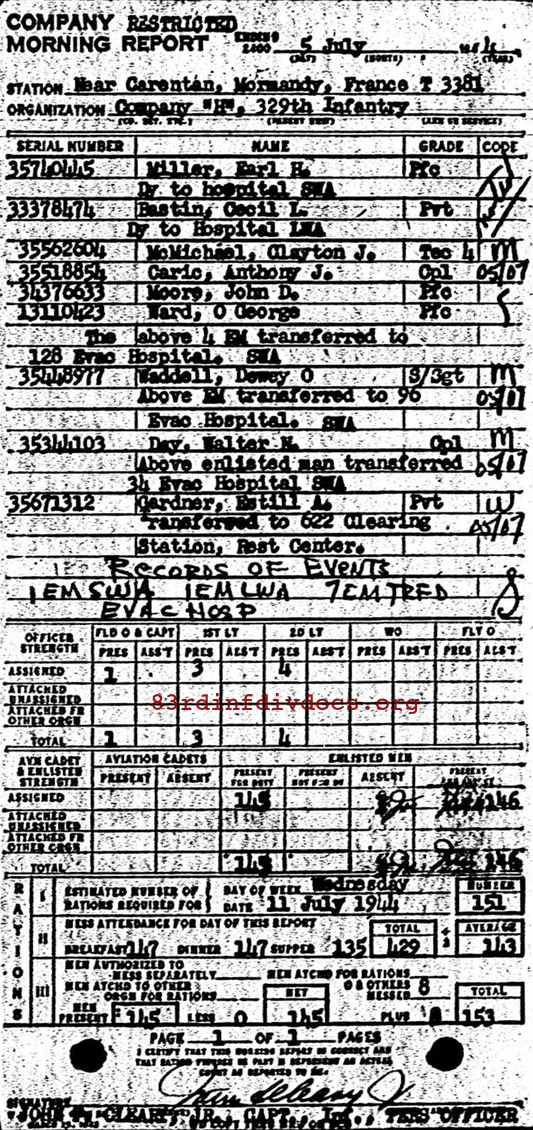 COMPANY RESTRICTED
MORNING REPORT ENDING 2400 5 July
(DAY) (MONTH) (YEAR)
STATION Near Carentan, Normandy, France T 3381
ORGANIZATION Company "H", 329th Infantry
SERIAL NUMBER NAME GRADE CODE
35740445 Miller, Earl H. Pfc
Dy to hospital SWA
33378474 Bastin, Cecil L. Pvt
Dy to Hospital LWA
35562604 McMichael, Clayton J. Tec 4 M
35518854 Caric, Anthony J. Cpl 05/07
34376633 Moore, John D. Pfc
13110423 Ward, O George Pfc
The above 4 EM transferred to
128 Evac Hospital. SWA
35448977 Waddell, Dewey O S/Sgt M
Above EM transferred to 96 05/07
Evac Hospital. SWA
35344103 Day, Walter N. Cpl M
Above enlisted man transferred 05/07
34 Evac Hospital SWA
35671312 Gardner, Estill A. Pvt W
Transferred to 622 Clearing 05/07
Station, Rest Center.
RECORDS OF EVENTS
1EM SWA 1EM LWA 7EM TRFD
EVAC HOSP
OFFICER STRENGTH FLD O & CAPT 1ST LT 2D LT WO FLT O
PRES ABS'T PRES ABS'T PRES ABS'T PRES ABS'T PRES ABS'T
ASSIGNED 1 3 4
ATTACHED UNASSIGNED
ATTACHED FR OTHER ORGN
83rdinfdivdocs.org
TOTAL 1 3 4
AVN CADET & ENLISTED STRENGTH AVIATION CADETS ENLISTED MEN
PRESENT ABSENT PRESENT FOR DUTY PRESENT NOT FOR DY ABSENT PRESENT
ASSIGNED 145 146
ATTACHED UNASSIGNED
ATTACHED FR OTHER ORGN
TOTAL 145 146
RATIONS
I ESTIMATED NUMBER OF RATIONS REQUIRED FOR DAY OF WEEK Wednesday NUMBER
DATE 11 July 1944 151
II MESS ATTENDANCE FOR DAY OF THIS REPORT TOTAL AVERAGE
BREAKFAST 147 DINNER 147 SUPPER 135 429 ÷ 3 143
III MEN AUTHORIZED TO MESS SEPARATELY MEN ATCHD FOR RATIONS
MEN ATCHD TO OTHER ORGN FOR RATIONS NET O & OTHERS MESSED 8 TOTAL
MEN PRESENT 145 LESS 0 145 PLUS 8 153
PAGE 1 OF 1 PAGES
I CERTIFY THAT THIS MORNING REPORT IS CORRECT AND
SIGNATURE
JOHN CLEARY, JR., CAPT., Inf., PERS OFFICER